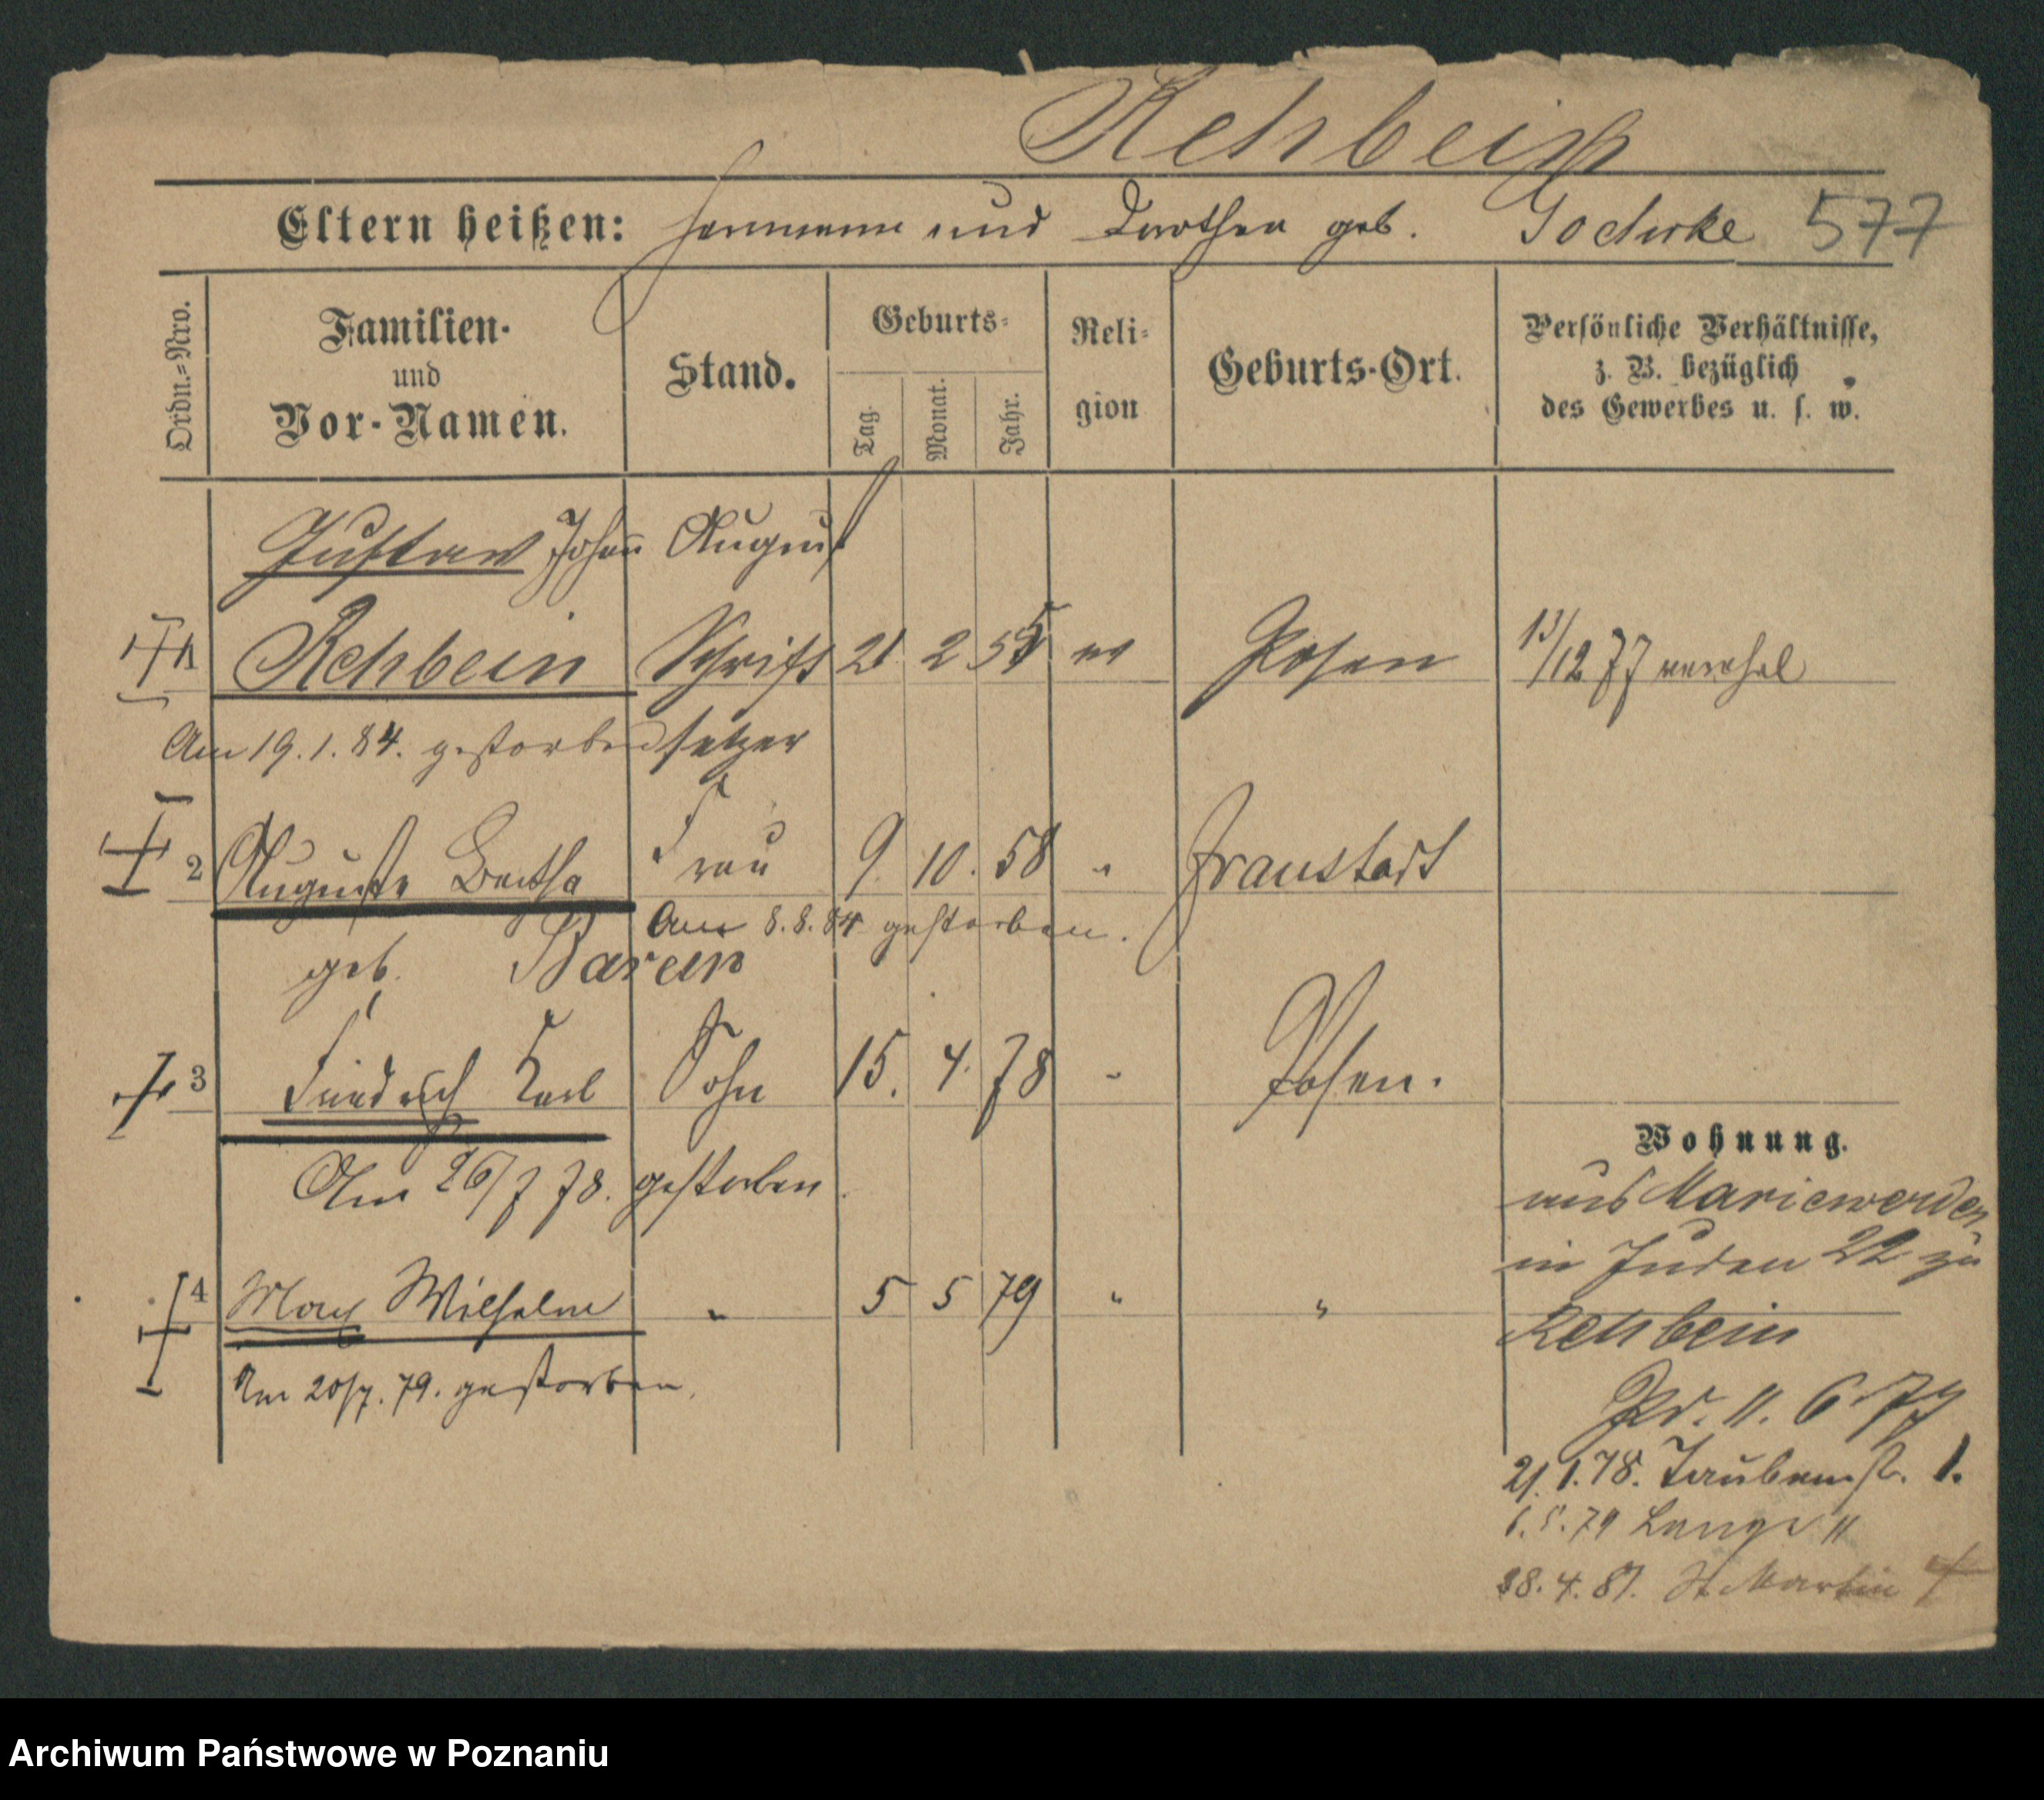 Rehbein
Eltern heißen: Hermann und Dorothea geb. 577
Ordn.=Nro.
Familien-
und
Vor-Namen.
Stand.
Geburts=
Tag.
Monat.
Jahr.
Reli=
gion
Geburts-Ort.
Persönliche Verhältnisse,
z. B. bezüglich
des Gewerbes u. s. w.
Gustav Johann August
1 Rehbein Schrift 21 2 55 ev Posen 13/12 77 verehel
Am 19. 1. 84. gestorben setzer
2 Auguste Bertha Frau 9. 10. 58 " Fraustadt
Am 8. 8. 84 gestorben.
geb.
3 Friedrich Karl Sohn 15. 4. 78 " Posen.
Am 26/7 78. gestorben.
Wohnung.
aus Marienwerder
in Juden 22 zu
4 Max Wilhelm " 5 5 79 " "
Rehbein
Am 20/7. 79. gestorben.
Pr. 11. 6 77
21. 1. 78. Taubenstr. 1.
6. 5. 79 Lange 11
28. 4. 81. St Martin 4
Archiwum Państwowe w Poznaniu